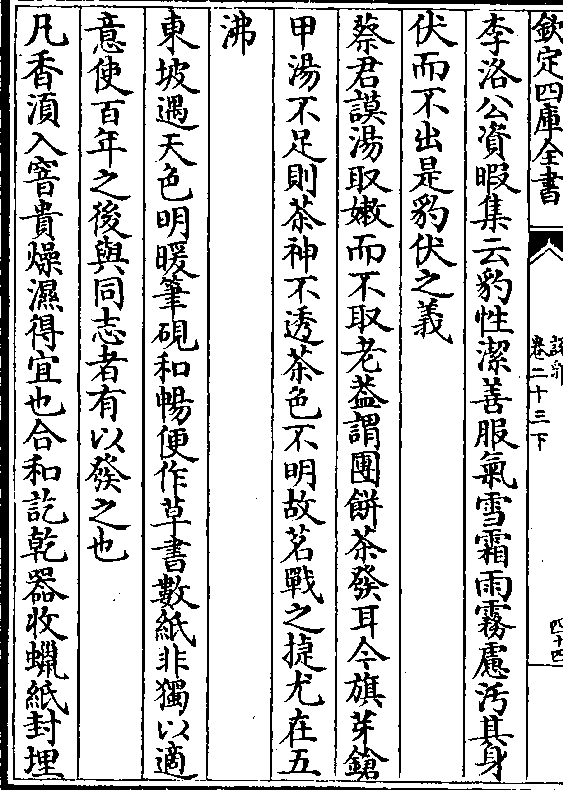 欽定四庫全書
說郛
卷二十三下
四十四
李洛公資暇集云豹性潔善服氣雪霜雨霧慮汚其身
伏而不出是豹伏之義
蔡君謨湯取嫩而不取老葢謂團餅茶發耳今旗芽鎗
甲湯不足則茶神不透茶色不明故茗戰之㨗尤在五
沸
東坡遇天色明暖筆硯和暢便作草書數紙非獨以適
意使百年之後與同志者有以發之也
凡香湏入窨貴燥濕得宜也合和訖乾器收蠟紙封埋